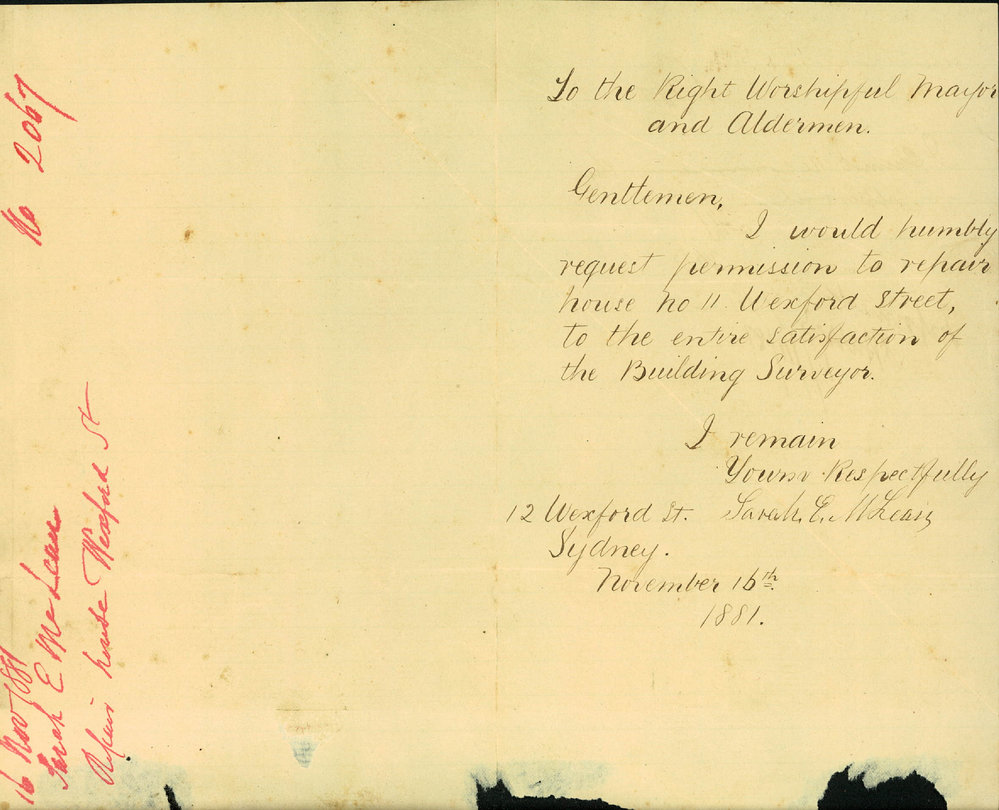 No 2067
16 Nov 1881
Sarah E McLean
Repair house Wexford St
To the Right Worshipful Mayor
and Aldermen.
Gentlemen,
I would humbly
request permission to repair
house No 11 Wexford Street,
to the entire satisfaction of
the Building Surveyor.
I remain
Yours Respectfully
12 Wexford St. Sarah E. McLean
Sydney.
November 16th
1881.